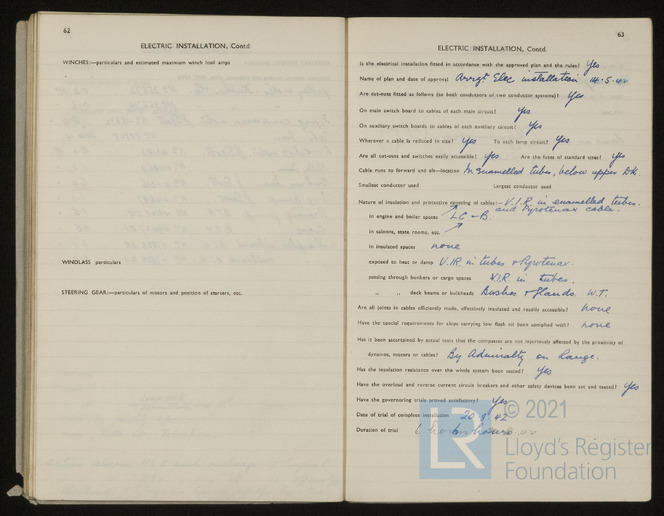 62
ELECTRIC INSTALLATION, Contd
WINCHES:—particulars and estimated maximum winch load amps
WINDLASS particulars
STEERING GEAR:—particulars of motors and position of starters, etc.
63
ELECTRIC INSTALLATION, Contd.
Is the electrical installation fitted in accordance with the approved plan and the rules? Yes
Name of plan and date of approval Arrgt Elec installation 14.5.42
Are cut-outs fitted as follows (to both conductors of two conductor systems)? Yes
On main switch board to cables of each main circuit? Yes
On auxiliary switch boards to cables of each auxiliary circuit? Yes
Wherever a cable is reduced in size? Yes To each lamp circuit? Yes
Are all cut-outs and switches easily accessible? Yes Are the fuses of standard sizes? Yes
Cable runs to forward and aft—location In enamelled tubes, below upper Dk.
Smallest conductor used Largest conductor used
Nature of insulation and protective covering of cables:— V.I.R. in enamelled tubes.
and Pyrotenax cable.
in engine and boiler spaces LC-B.
in saloons, state rooms, etc.
in insulated spaces none
exposed to heat or damp V.I.R. in tubes & Pyrotenax.
passing through bunkers or cargo spaces V.I.R in tubes.
" " deck beams or bulkheads Bushes & glands. W.T.
Are all joints in cables efficiently made, effectively insulated and readily accessible? none
Have the special requirements for ships carrying low flash oil been complied with? none
Has it been ascertained by actual tests that the compasses are not injuriously affected by the proximity of
dynamos, motors or cables? By Admiralty on Range.
Has the insulation resistance over the whole system been tested? Yes
Have the overload and reverse current circuit breakers and other safety devices been set and tested? Yes
Have the governoring trials proved satisfactory? Yes
Date of trial of complete installation 20.8.42
Duration of trial hours
© 2021
LR
Lloyd's Register
Foundation